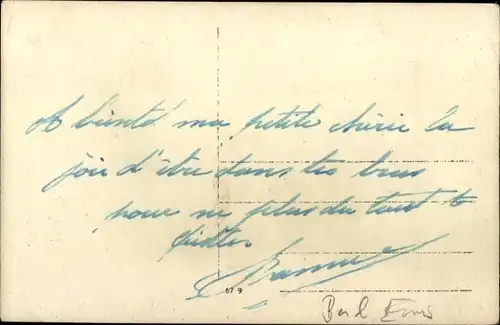 A bientô ma petite chérie la
joie d'être dans tes bras
pour ne plus du tout te
quitter
57 9
Bad Ems